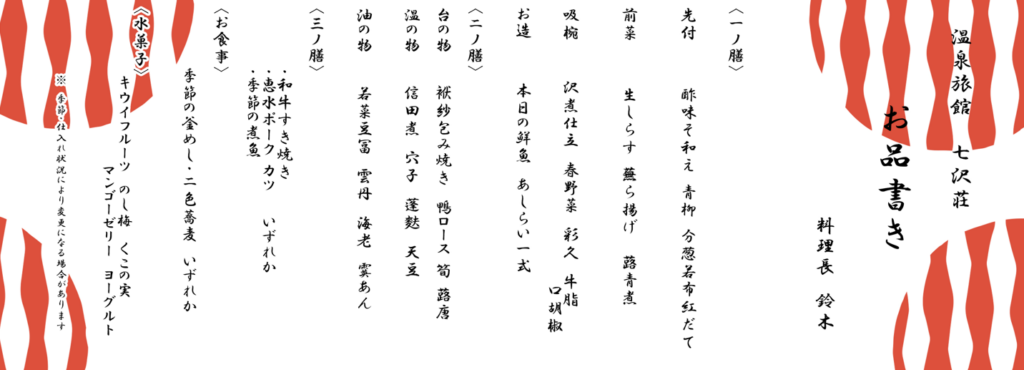 温泉旅館 七沢荘
お品書き
料理長 鈴木
〈一ノ膳〉
先付 酢味そ和え 青柳 分葱若布紅だて
前菜 生しらす 蕪ら揚げ 蕗青煮
吸椀 沢煮仕立 春野菜 彩久 牛脂
口胡椒
お造 本日の鮮魚 あしらい一式
〈二ノ膳〉
台の物 袱紗包み焼き 鴨ロース 筍 蕗唐
温の物 信田煮 穴子 蓬麩 天豆
油の物 若菜豆冨 雲丹 海老 霙あん
〈三ノ膳〉
・和牛すき焼き
・恵水ポーク カツ いずれか
・季節の煮魚
〈お食事〉
季節の釜めし・二色蕎麦 いずれか
〈水菓子〉
キウイフルーツ のし梅 くこの実
マンゴーゼリー ヨーグルト
※ 季節・仕入れ状況により変更になる場合があります